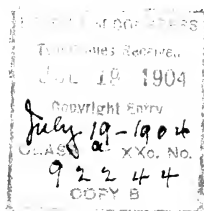 Two Copies Received
JUL 19 1904
Copyright Entry
July 19-1904
CLASS a XXc. No.
92244
COPY B